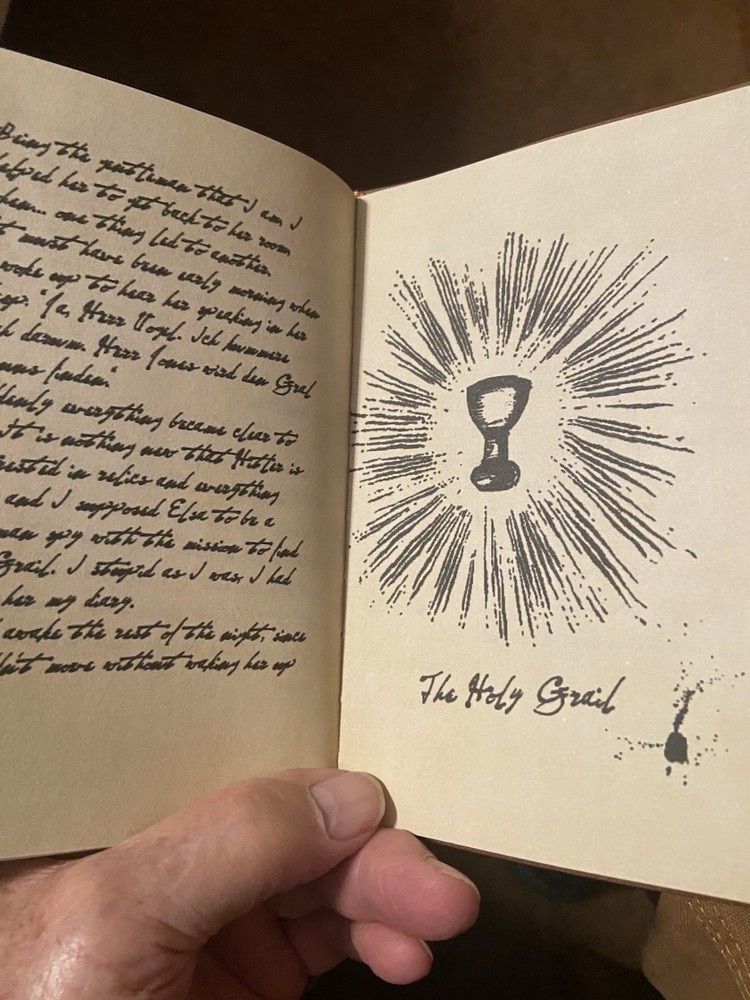 Being the gentleman that I am, I
helped her to get back to her room,
then... one thing led to another.
t must have been early morning when
woke up to hear her speaking in her
eep: "Ja, Herr Vogel. Ich kummere
ch darum. Herr Jones wird den Gral
finden."
denly everything became clear to
It is nothing new that Hitler is
rested in relics and everything
and I supposed Elsa to be a
man spy with the mission to find
Grail. I stupid as I was, I had
her my diary.
awake the rest of the night, since
ldn't move without waking her up
The Holy Grail